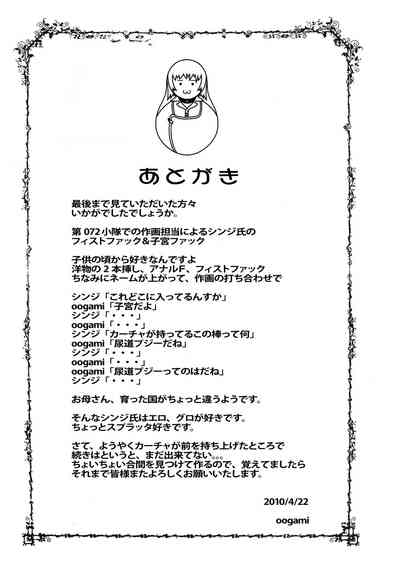 あとがき
最後まで見ていただいた方々
いかがでしたでしょうか。
第 072 小隊での作画担当によるシンジ氏の
フィストファック＆子宮ファック
子供の頃から好きなんですよ
洋物の 2 本挿し、アナルF、フィストファック
ちなみにネームが上がって、作画の打ち合わせで
シンジ「これどこに入ってるんすか」
oogami「子宮だよ」
シンジ「・・・」
oogami「・・・」
シンジ「カーチャが持ってるこの棒って何」
oogami「尿道ブジーだね」
シンジ「・・・」
oogami「・・・」
oogami「尿道ブジーってのはだね」
シンジ「・・・」
お母さん、育った国がちょっと違うようです。
そんなシンジ氏はエロ、グロが好きです。
ちょっとスプラッタ好きです。
さて、ようやくカーチャが前を持ち上げたところで
続きはというと、まだ出来てない。。。
ちょいちょい合間を見つけて作るので、覚えてましたら
それまで皆様またよろしくお願いいたします。
2010/4/22
oogami